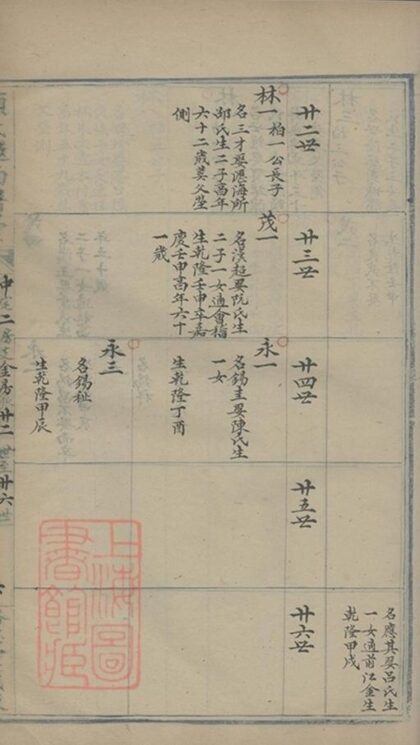 名應其娶呂氏生
一女適前江金生
乾隆甲戌
廿二世
廿三世
廿四世
廿五世
廿六世
林一
柏一公長子
名三才娶滙海所
邵氏生二子高年
六十二歲葬父塋
側
茂一
名漢超娶阮氏生
二子一女適會稽
生乾隆壬申卒嘉
慶壬申高年六十
一歲
永一
名錫圭娶陳氏生
一女
生乾隆丁酉
永三
名錫祉
生乾隆甲辰
中
二房
金房廿二世至廿六世
上海圖
書館藏